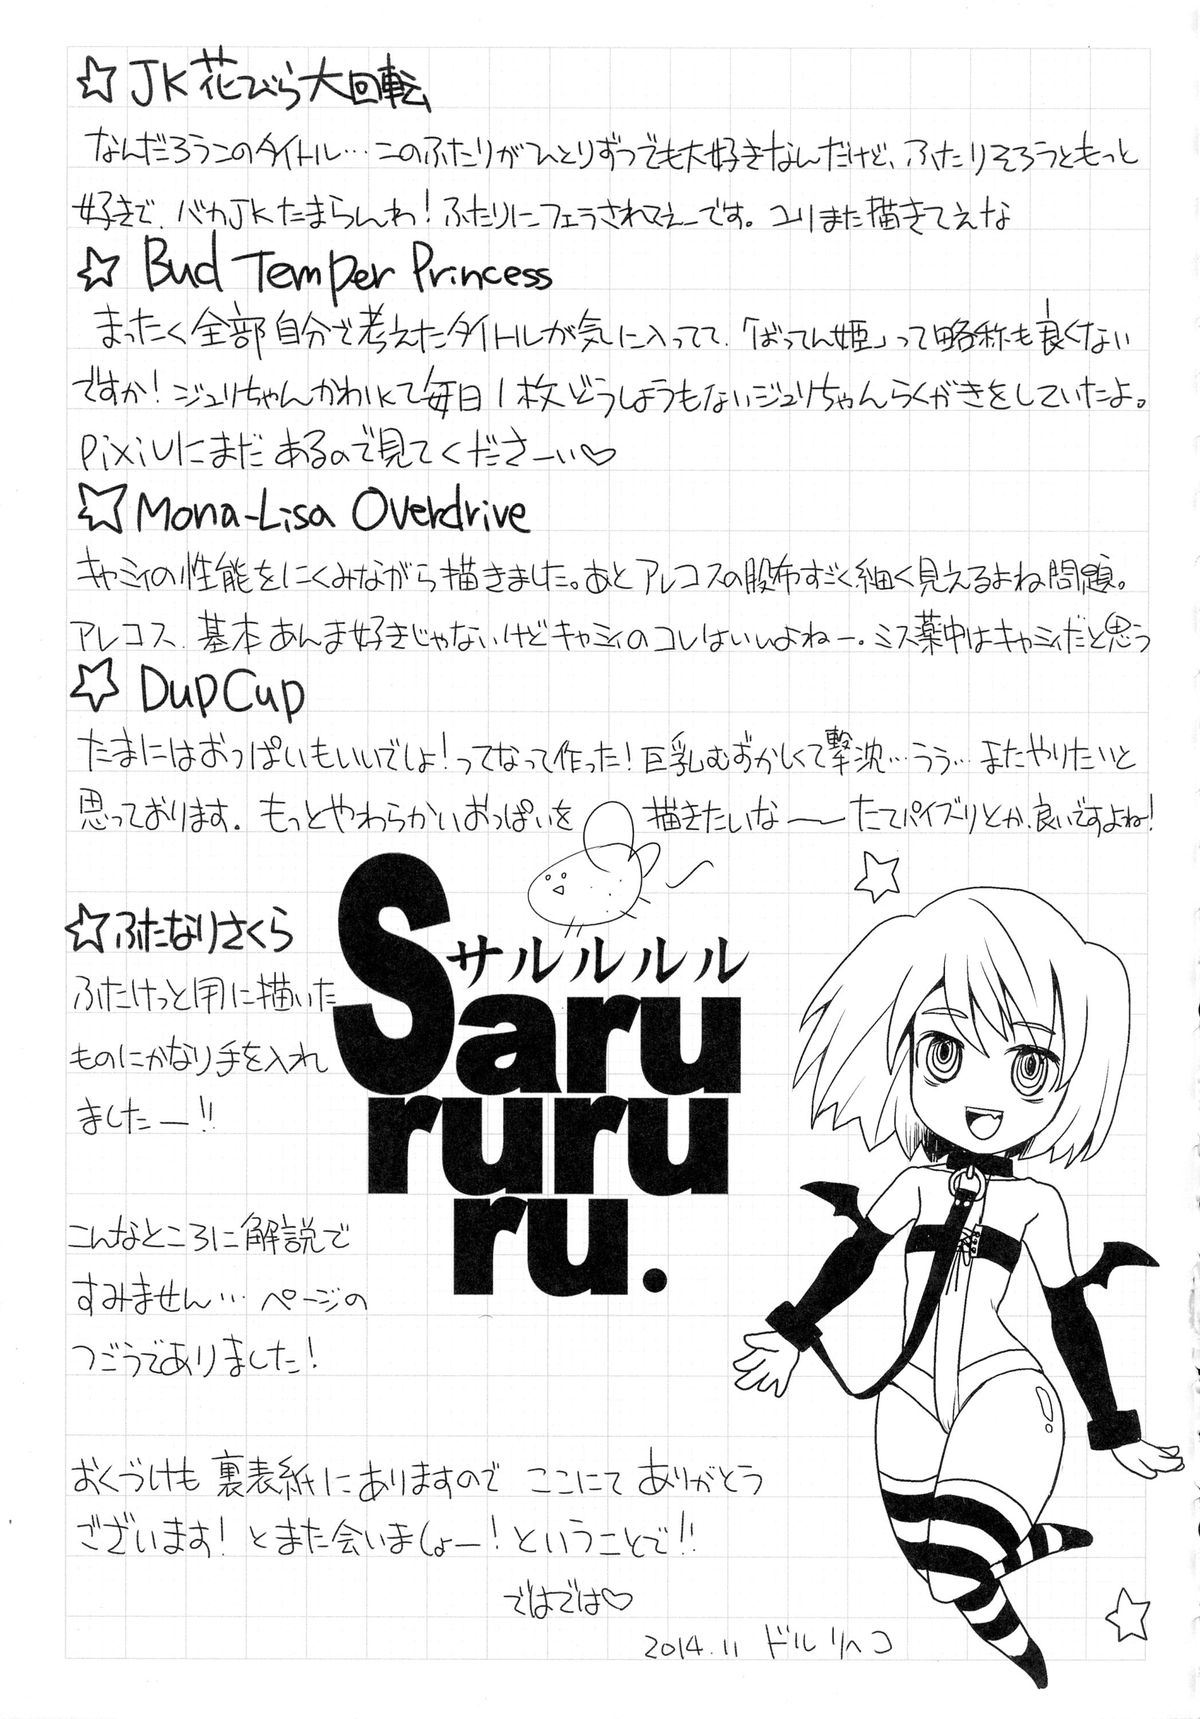 ☆JK花びら大回転
なんだろうこのタイトル…このふたりがひとりずつでも大好きなんだけど、ふたりそろうともっと
好きで、バカJKたまらんわ!ふたりにフェラされてえーです。ユリまた描きてえな
☆Bud Temper Princess
まったく全部自分で考えたタイトルが気に入ってて、「ばってん姫」って略称も良くない
ですか!ジュリちゃんかわいくて毎日1枚どうしようもないジュリちゃんらくがきをしていたよ。
pixivにまだあるので見てくださーい♡
☆Mona-Lisa Overdrive
キャミィの性能をにくみながら描きました。あとアレコスの股布すごく細く見えるよね問題。
アレコス、基本あんま好きじゃないけどキャミィのコレはいいよねー。ミス薬中はキャミィだと思う
☆DupCup
たまにはおっぱいもいいでしょ!ってなって作った!巨乳むずかしくて撃沈…うう…またやりたいと
思っております。もっとやわらかいおっぱいを描きたいな〜たてパイズリとか、良いですよね!
☆ふたなりさくら
ふたけっと用に描いた
ものにかなり手を入れ
ましたー!!
サルルルル
Saru
ruru
ru.
こんなところに解説で
すみません…ページの
つごうでありました!
おくづけも裏表紙にありますので ここにて ありがとう
ございます!とまた会いましょー!ということで!!
ではでは♡
2014.11 ドルリヘコ